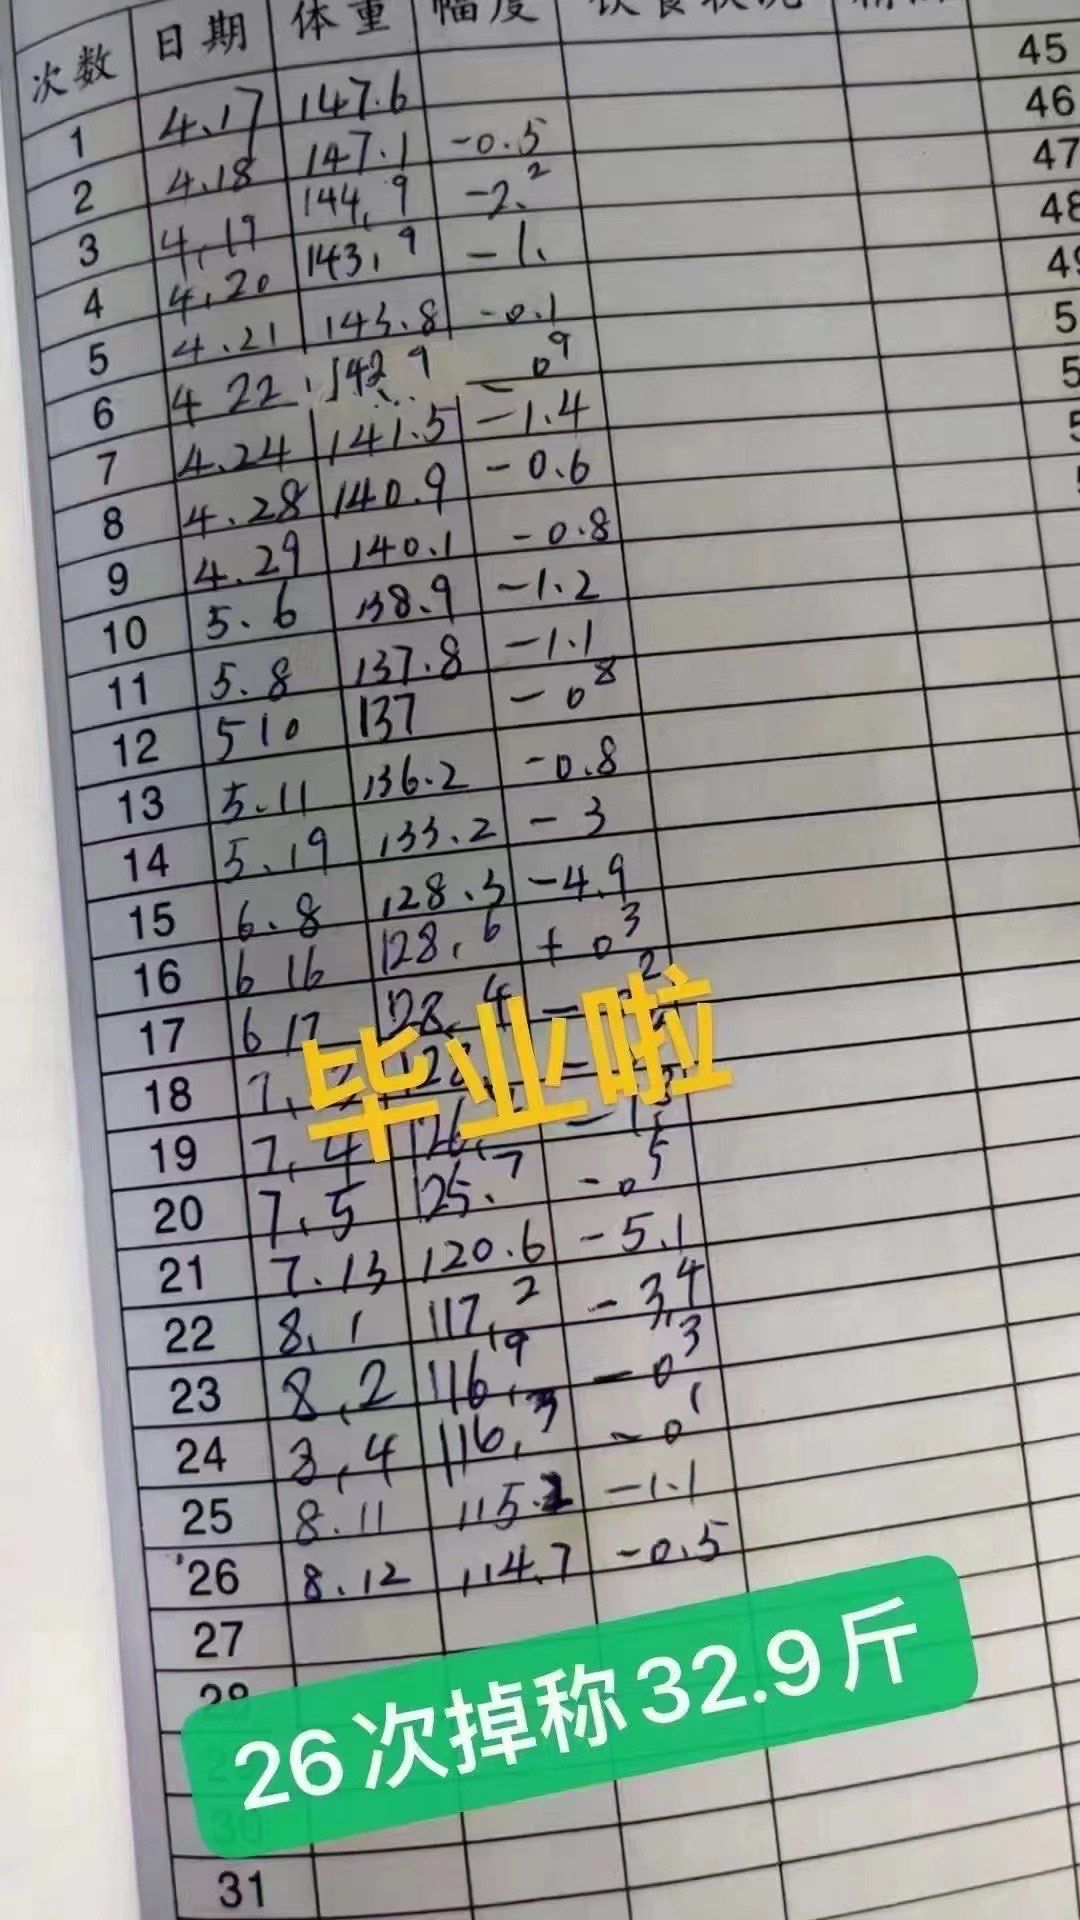 次数 日期 体重 幅度
1 4.17 147.6 45
2 4.18 147.1 -0.5 46
3 4.19 144.9 -2.2 47
4 4.20 143.9 -1. 48
5 4.21 143.8 -0.1
6 4 22 142.9 -0.9
7 4.24 141.5 -1.4
8 4.28 140.9 -0.6
9 4.29 140.1 -0.8
10 5.6 138.9 -1.2
11 5.8 137.8 -1.1
12 510 137 -0.8
13 5.11 136.2 -0.8
14 5.19 133.2 -3
15 6.8 128.3 -4.9
16 6 16 128.6 +0.3
17 6 17 128.4
毕业啦
18
19 7.4
20 7.5 125.7 -0.5
21 7.13 120.6 -5.1
22 8.1 117.2 -3.4
23 8.2 116.9 -0.3
24 8.4 116.3 -0.1
25 8.11 115.2 -1.1
26 8.12 114.7 -0.5
27
28
26次掉称32.9斤
30
31